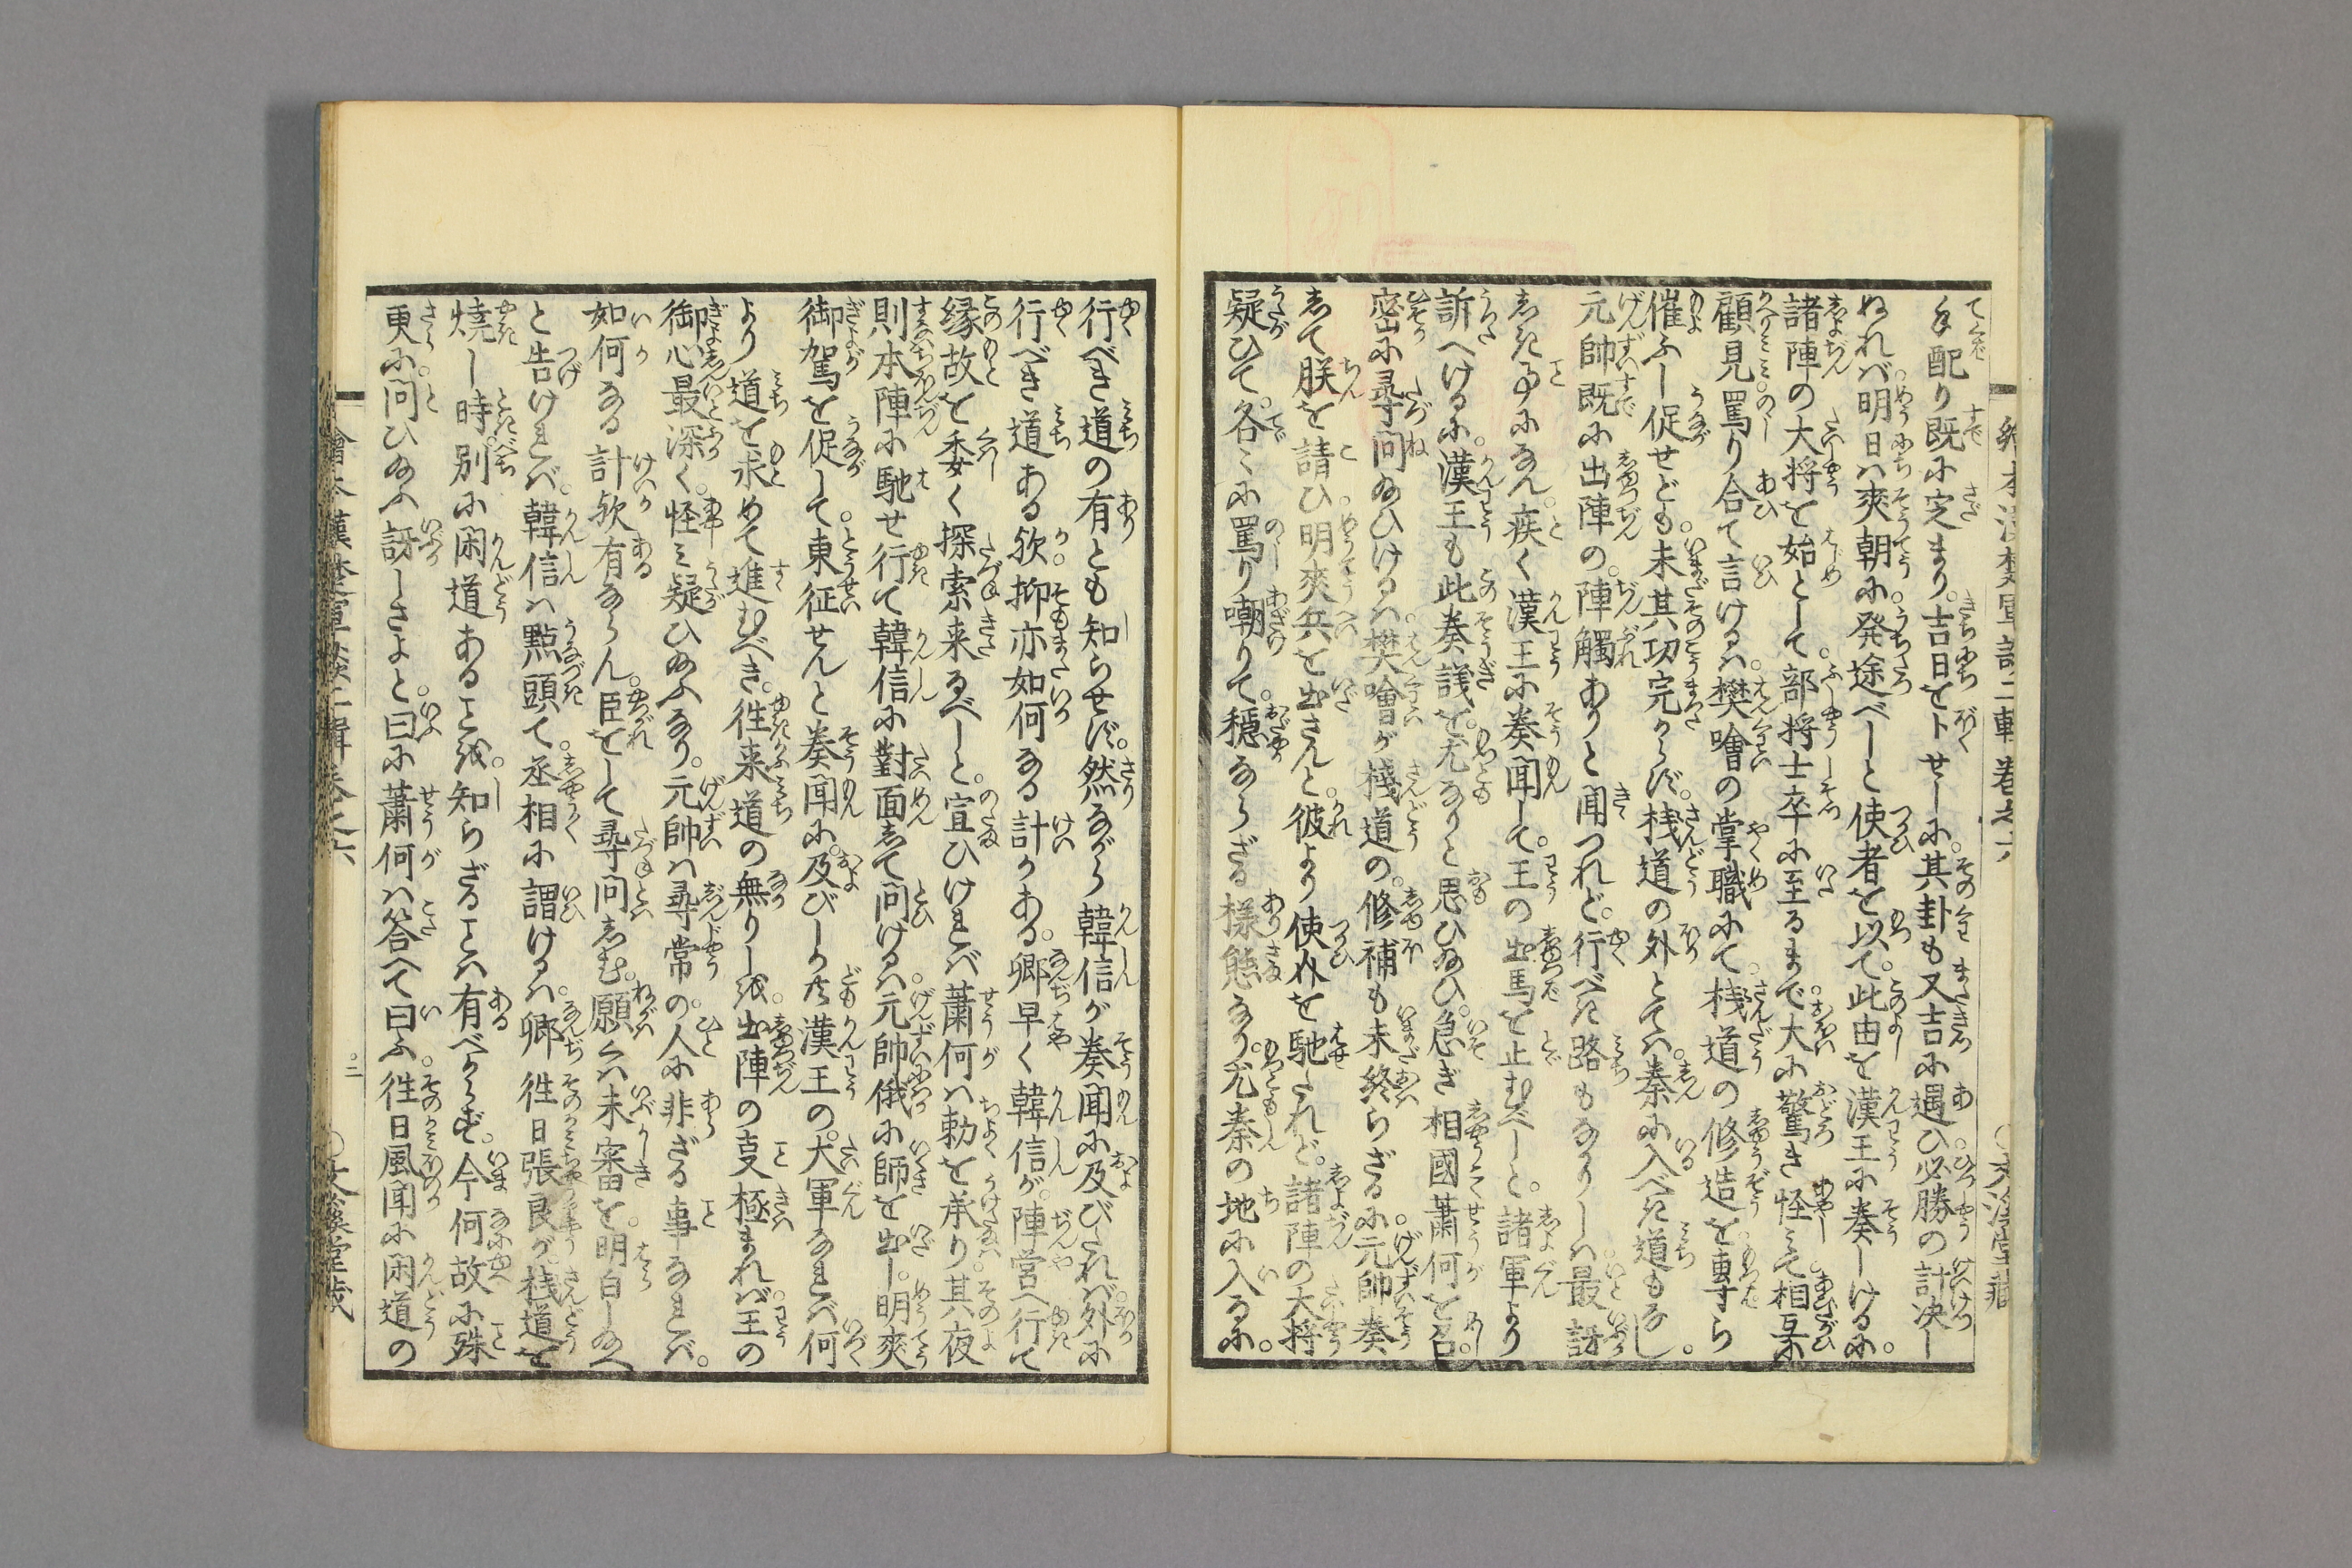 手配り既に定まり。吉日を卜せしに。其卦も又吉に遇ひ必勝の計決し
ぬれバ。明日ハ爽朝に。発途べしと使者を以て。此由を漢王に奏しけるに。
諸陣の大将を始として。部将士卒に至るまで。大に驚き怪ミて。相互に
顧見。罵り合て言けるハ。樊噲の掌職にて。桟道の修造を専ら
催ふし促せども。未其功完からず。桟道の外とてハ。秦に入べき道もなし。
元帥既に出陣の。陣觸ありと聞つれど。行べき路もなかりしハ。最訝
しき事になん。疾く漢王に奏聞して。王の出馬を止むべしと。諸軍より
訴へけるに。漢王も此奏議を。尤なりと思ひ給ひ。急ぎ相國蕭何を召。
密に尋問給ひけるハ。樊噲が棧道の。修補も未終らざるに。元帥奏
して朕を請ひ。明爽兵を出さんと。彼より使を馳たれど。諸陣の大将
疑ひて。各〻に罵り嘲りて。穏ならざる様態なり。尤秦の地に入るに。
行べき道の有とも知らせず。然ながら韓信が奏聞に及びたれバ。外に
行べき道ある欤。抑亦如何なる計かある。卿早く韓信が。陣営へ行て
縁故を委く探索来るべしと。宣ひけれバ蕭何ハ勅を承り。其夜
則本陣に馳せ行て韓信に對面して問けるハ。元帥俄に師を出し。明爽
御駕を促して。東征せんと奏聞に。及びしかども漢王の。大軍なれバ何
より道を求めて進むべき。往来道の無りしを。出陣の事極まれバ。王の
御心最深く。怪ミ疑ひ給ふなり。元帥ハ尋常の。人に非ざる事なれバ。
如何なる計欤有ならん。臣をして尋問しむ。願くハ未審を。明白し給へ
と告けれバ。韓信ハ點頭て。丞相に謂けるハ。卿往日張良が。桟道を
燒し時。別に閑道あることを。知らざることハ有べからず。今何故に殊
更に。問ひ給ふ訝しさよと。曰に蕭何ハ答へて曰ふ。往日風聞に閑道の
繪本漢楚軍談二輯巻之六
二
○文溪堂藏